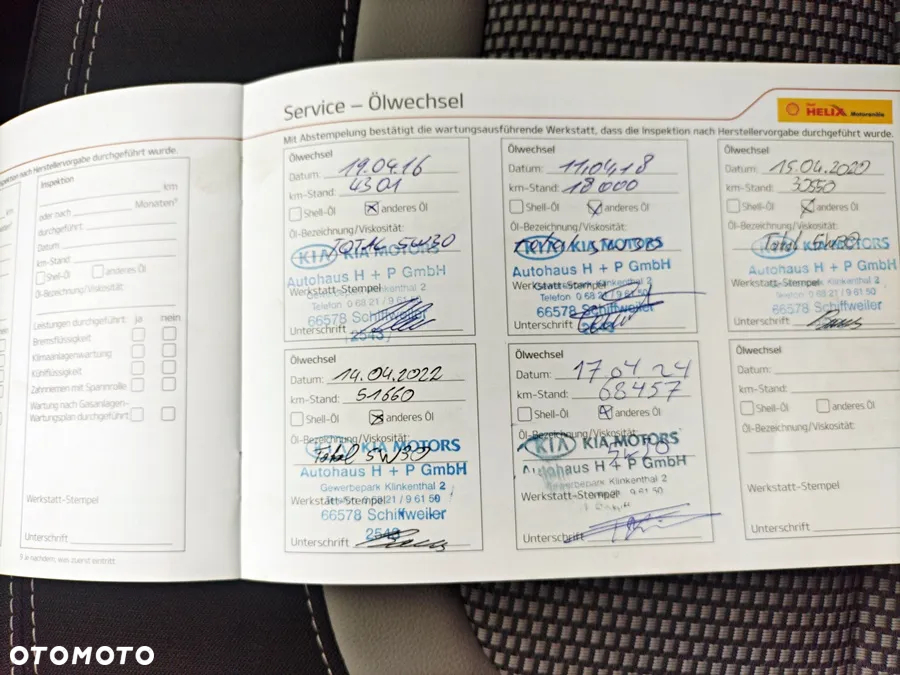 nspektion nach Herstellervorgabe durchgeführt wurde.
Inspektion
km
oder nach Monaten⁹
durchgeführt
Datum
km-Stand:
Shell-Öl anderes Öl
Öl-Bezeichnung/Viskosität:
Leistungen durchgeführt: ja nein
Bremsflüssigkeit
Klimaanlagenwartung
Kühlflüssigkeit
Zahnriemen mit Spannrolle
Wartung nach Gasanlagen-
Wartungsplan durchgeführt
Werkstatt-Stempel
Unterschrift
9 Je nachdem, was zuerst eintritt
Service – Ölwechsel
Shell HELIX Motorenöle
Mit Abstempelung bestätigt die wartungsausführende Werkstatt, dass die Inspektion nach Herstellervorgabe durchgeführt wurde.
Ölwechsel
Datum: 19.04.16
km-Stand: 4301
Shell-Öl anderes Öl
Öl-Bezeichnung/Viskosität:
TOTAL 5W30
KIA KIA MOTORS
Autohaus H + P GmbH
Werkstatt-Stempel
Telefon 0 68 21 / 9 61 50
66578 Schiffweiler
Unterschrift
2543
Ölwechsel
Datum: 11.04.18
km-Stand: 18000
Shell-Öl anderes Öl
Öl-Bezeichnung/Viskosität:
KIA KIA MOTORS
Autohaus H + P GmbH
Werkstatt-Stempel
Telefon 0 68 21 / 9 61 50
66578 Schiffweiler
Unterschrift
2543
Ölwechsel
Datum: 15.04.2020
km-Stand: 30550
Shell-Öl anderes Öl
Öl-Bezeichnung/Viskosität:
Total 5W30
KIA KIA MOTORS
Autohaus H + P GmbH
Werkstatt-Stempel
Telefon 0 68 21 / 9 61 50
66578 Schiffweiler
Unterschrift
Ölwechsel
Datum: 14.04.2022
km-Stand: 51660
Shell-Öl anderes Öl
Öl-Bezeichnung/Viskosität:
Total 5W30
KIA MOTORS
Autohaus H + P GmbH
Gewerbepark Klinkenthal 2
Werkstatt-Stempel 68 21 / 9 61 50
66578 Schiffweiler
2543
Unterschrift
Ölwechsel
Datum: 17.04.24
km-Stand: 68457
Shell-Öl anderes Öl
Öl-Bezeichnung/Viskosität:
KIA KIA MOTORS
Autohaus H + P GmbH
Gewerbepark Klinkenthal 2
Werkstatt-Stempel 9 61 50
Unterschrift
Ölwechsel
Datum:
km-Stand:
Shell-Öl anderes Öl
Öl-Bezeichnung/Viskosität:
Werkstatt-Stempel
Unterschrift
OTOMOTO